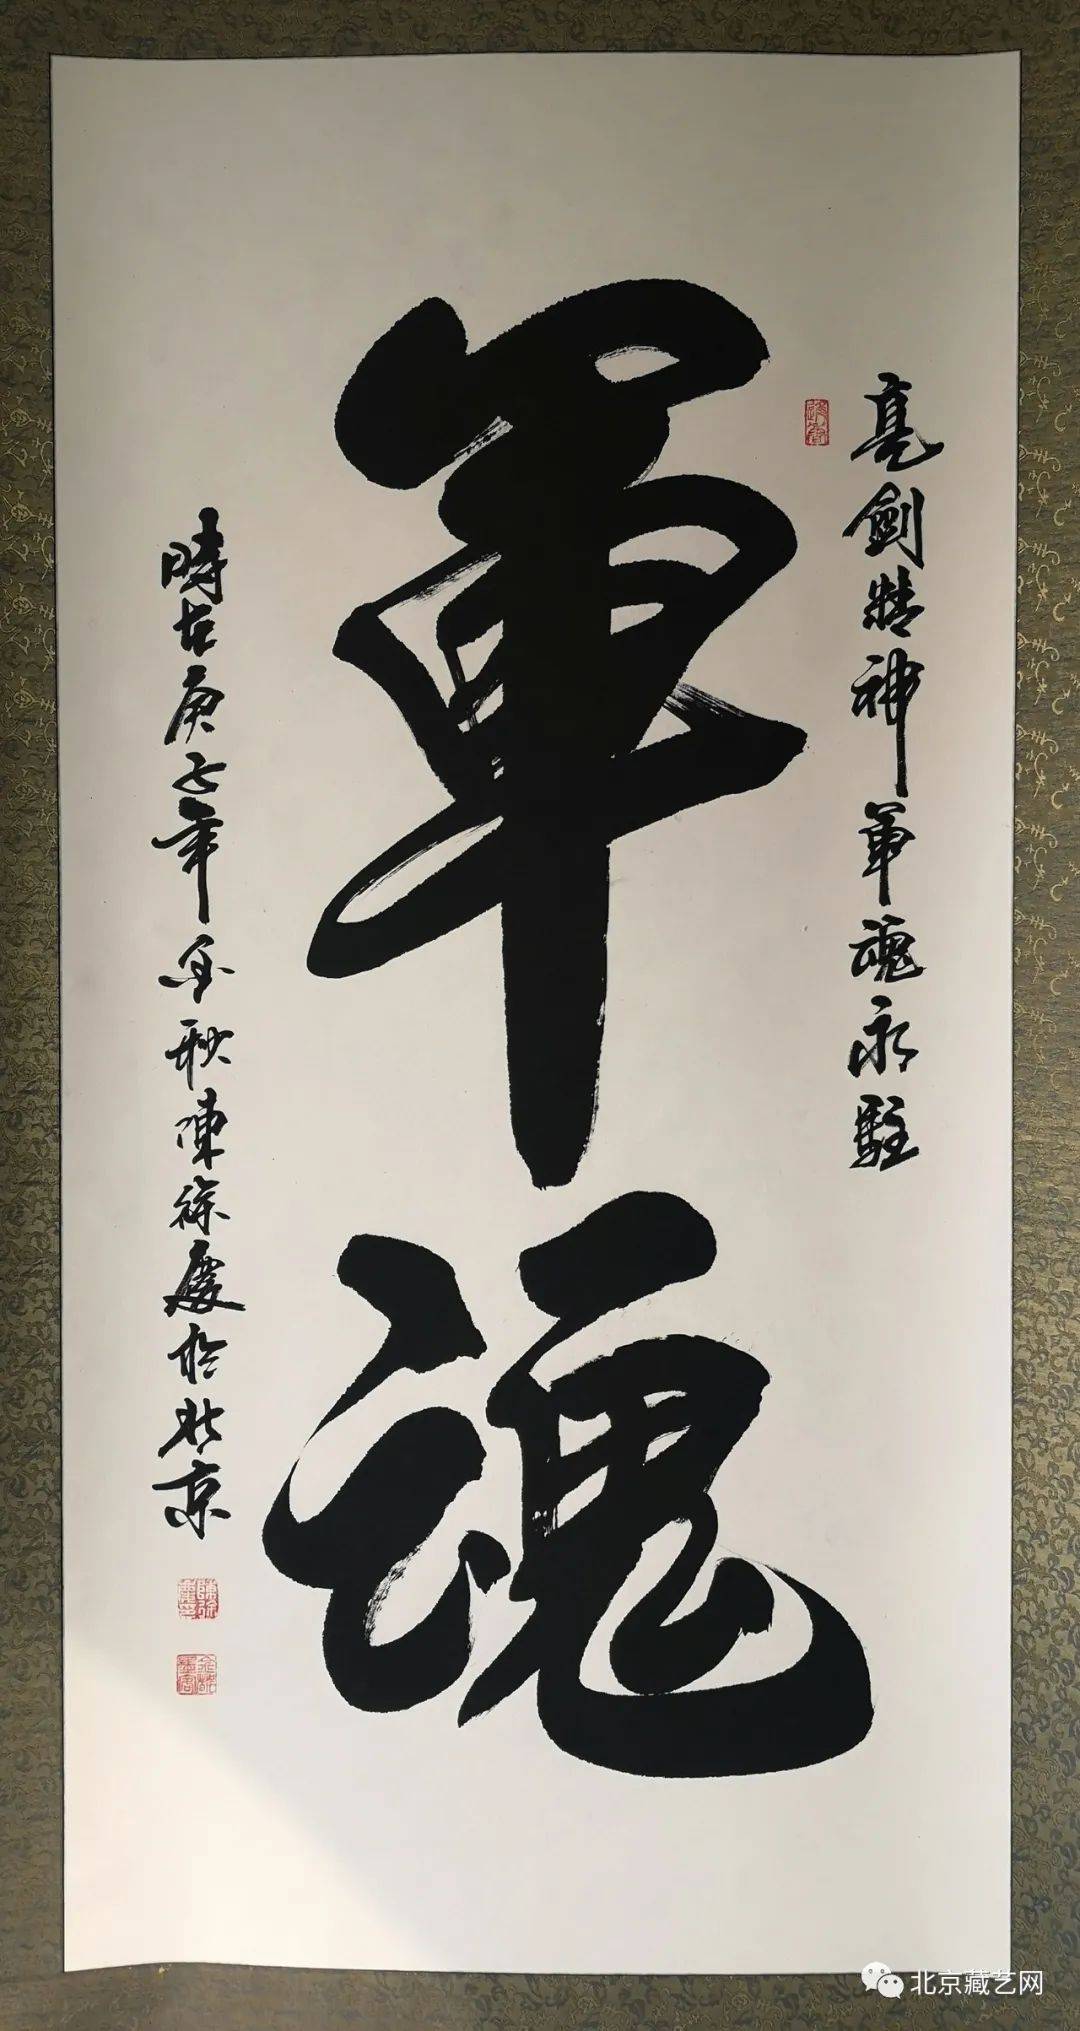 亮劍精神軍魂永駐
軍魂
時在庚子年金秋陳徐慶於北京
北京藏艺网